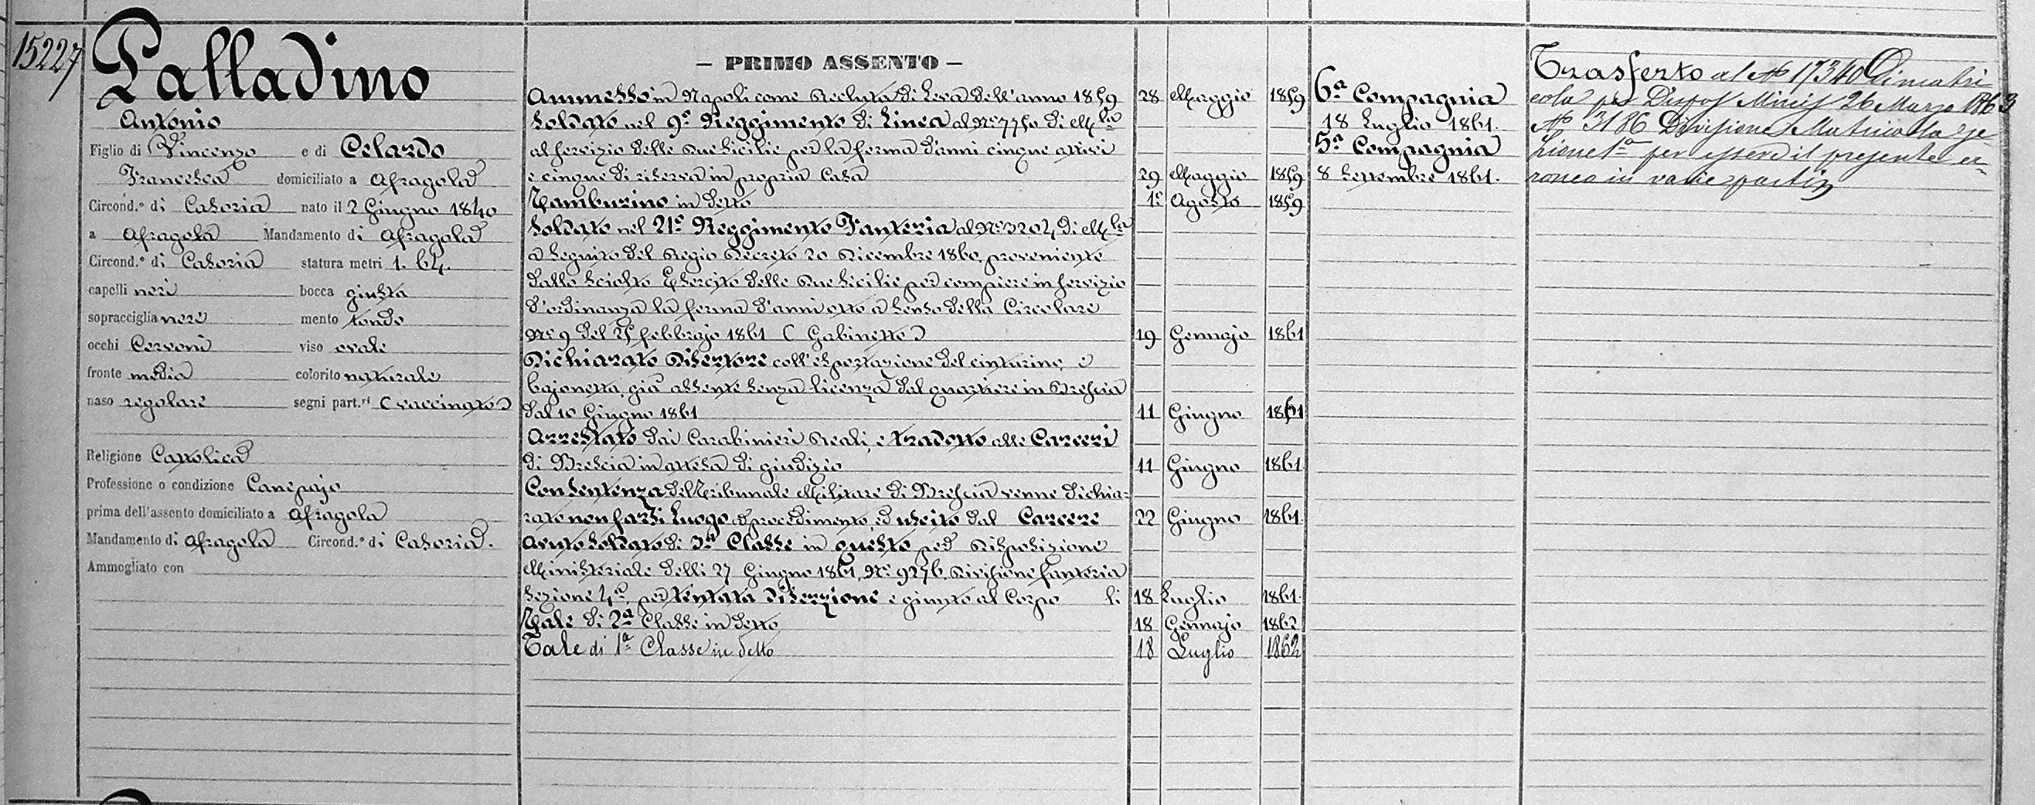 15227
Palladino
Antonio
Figlio di Vincenzo e di Celardo
Francesca domiciliato a Afragola
Circond.º di Casoria nato il 2 Giugno 1840
a Afragola Mandamento di Afragola
Circond.º di Casoria statura metri 1. 64.
capelli neri bocca giusta
sopracciglia nere mento tondo
occhi Cervoni viso ovale
fronte media colorito naturale
naso regolare segni part.ri (vaccinato)
Religione Cattolica
Professione o condizione Canepajo
prima dell'assento domiciliato a Afragola
Mandamento di Afragola Circond.º di Casoria.
Ammogliato con
— PRIMO ASSENTO —
Ammesso in Napoli come Recluta di Leva dell'anno 1859 28 Maggio 1859
Soldato nel 9º Reggimento di Linea al Nº 7750 di Mla
al servizio delle Due Sicilie per la ferma d'anni cinque attivi
e cinque di riserva in propria Casa 29 Maggio 1859
Tamburino in detto 1º Agosto 1859
Soldato nel 21º Reggimento Fanteria al Nº 3204 di Mla
a seguito del Regio Decreto 20 Dicembre 1860, proveniente
dallo sciolto Esercito delle Due Sicilie per compiere in servizio
d'ordinanza la ferma d'anni otto a senso della Circolare
Nº 9 del 25 febbrajo 1861 (Gabinetto) 19 Gennajo 1861
Dichiarato Disertore coll'esportazione del cinturino, e
bajonetta, già assente senza licenza dal quartiere in Brescia
dal 10 Giugno 1861 11 Giugno 1861
Arrestato dai Carabinieri Reali, e tradotto alle Carceri
di Brescia in attesa di giudizio 11 Giugno 1861
Con sentenza del Tribunale Militare di Brescia venne dichia-
rato non farsi luogo a procedimento, ed uscito dal Carcere 22 Giugno 1861
Avuto Soldato di 3ª Classe in questo per Disposizione
Ministeriale delli 27 Giugno 1861, Nº 9276, Divisione fanteria
Sezione 4ª per tentata diserzione e giunto al Corpo li 18 Luglio 1861
Tale di 2ª Classe in detto 18 Gennajo 1862
Tale di 1ª Classe in detto 18 Luglio 1862
6ª Compagnia
18 Luglio 1861.
5ª Compagnia
8 Settembre 1861.
Trasferto al Nº 17340 di matri
cola per Dispos Minis 26 Marzo 1863
Nº 3186 Divisione Matricola se
zione 1ª per essere il presente er-
roneo in varie parti